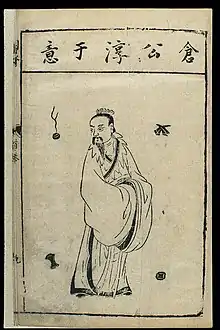 倉公淳于意